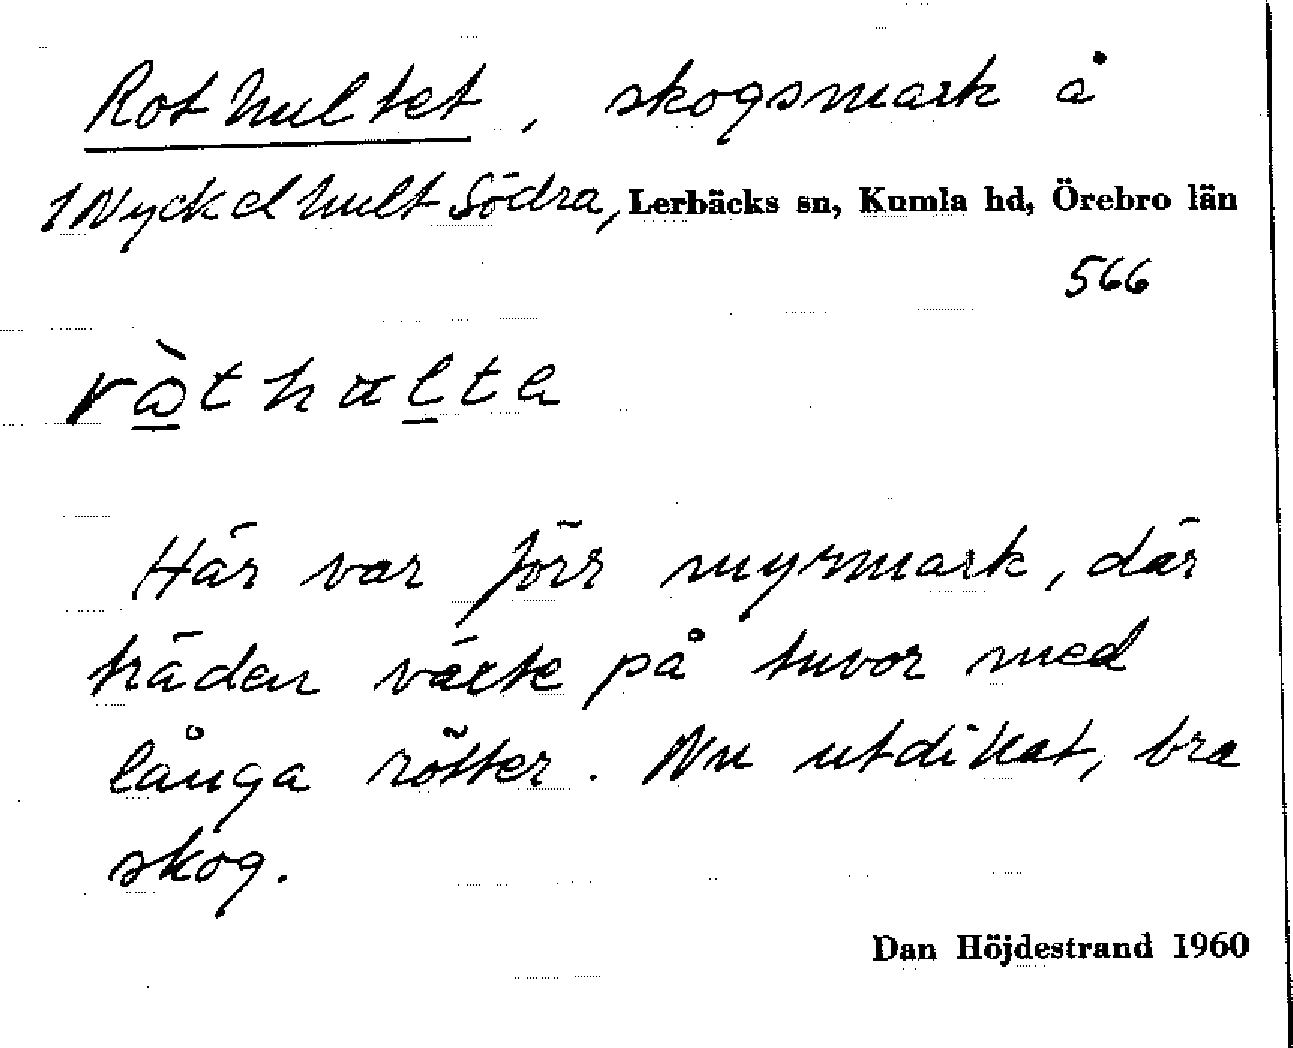 Rothultet, skogsmark å
1 Nyckelhult Södra, Lerbäcks sn, Kumla hd, Örebro län
566
ràthulta
Här var förr myrmark, där
träden växte på tuvor med
långa rötter. Nu utdikat, bra
skog.
Dan Höjdestrand 1960